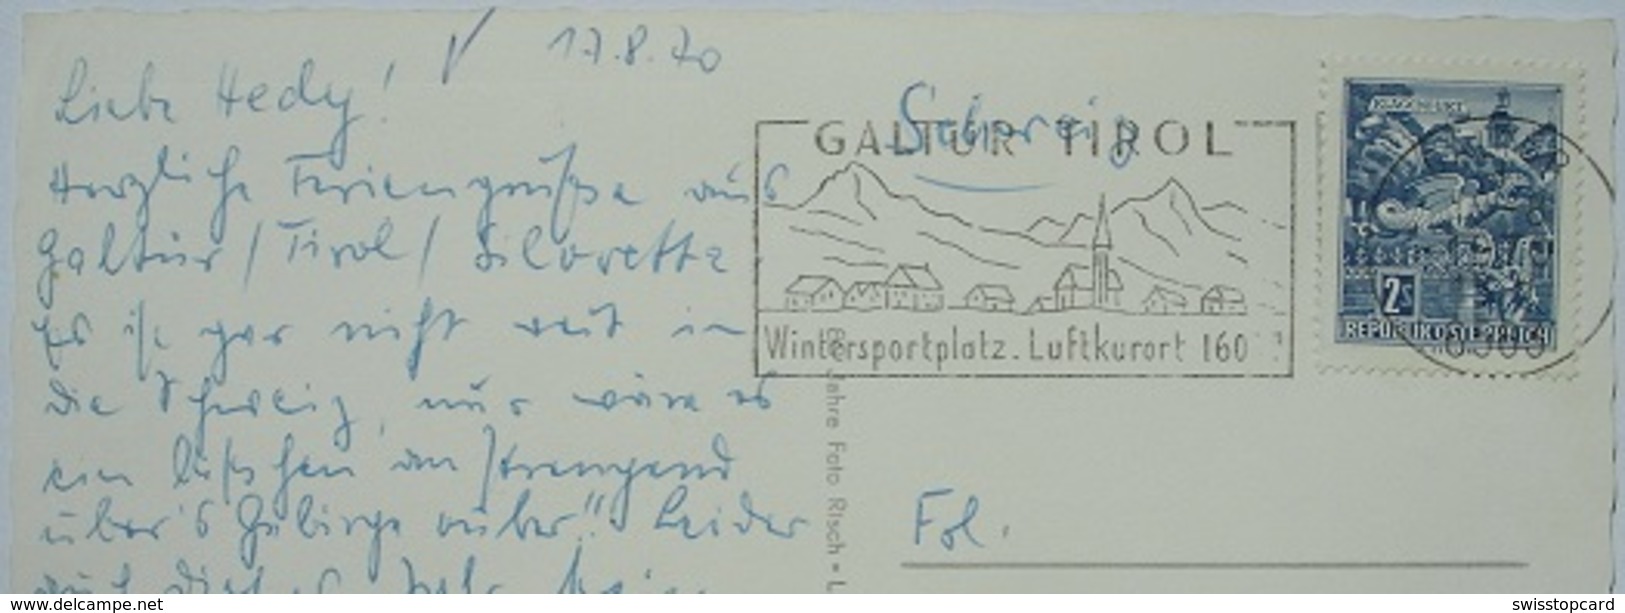 17.8.70
Liebe Hedy!
Herzliche Feriengrüße aus
Galtür / Tirol / Silvretta
Es ist gar nicht weit in
die Schweiz, nur wäre es
ein bißchen anstrengend
über's Gebirge rüber". Leider
auch dieses Jahr kein
Schweiz
GALTÜR TIROL
Wintersportplatz. Luftkurort 160
KLAGENFURT
2s
REPUBLIK OSTERREICH
6563
Jahre Foto Risch • L
Frl.
www.delcampe.net
swisstopcard